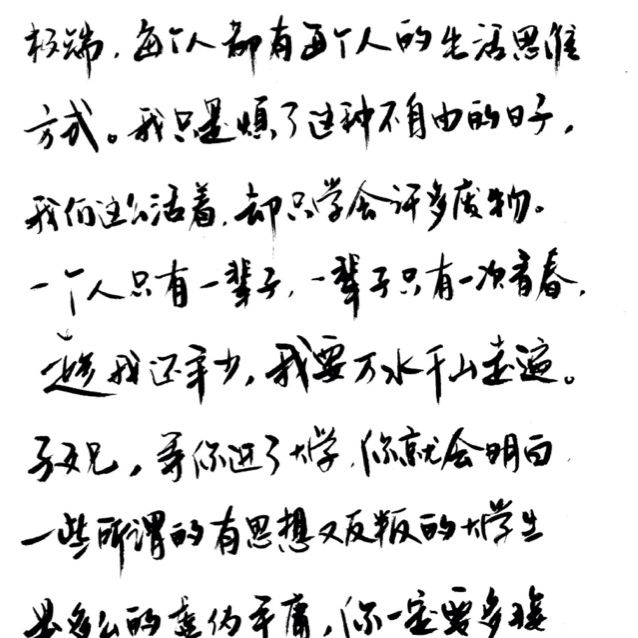 极端，每个人都有每个人的生活思维
方式。我只是烦了这种不自由的日子，
我们这么活着，却只学会许多废物。
一个人只有一辈子，一辈子只有一次青春，
趁我还年少，我要万水千山走遍。
兄，等你进了大学，你就会明白
一些所谓的有思想又反叛的大学生
是多么的虚伪平庸，你一定要多接